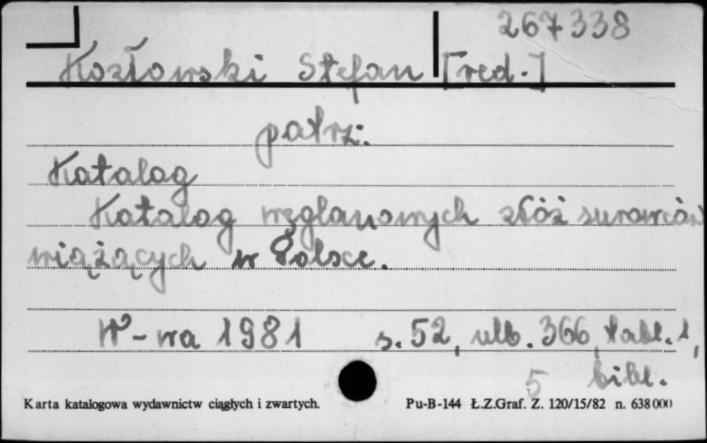 267338
Kozłowski Stefan [red.]
patrz:
Katalog
Katalog węglanowych złóż surowców
wiążących w Polsce.
W-wa 1981 s. 52, ulb. 366, tabl. 1,
5 bibl.
Karta katalogowa wydawnictw ciągłych i zwartych. Pu-B-144 Ł.Z.Graf. Z. 120/15/82 n. 638000